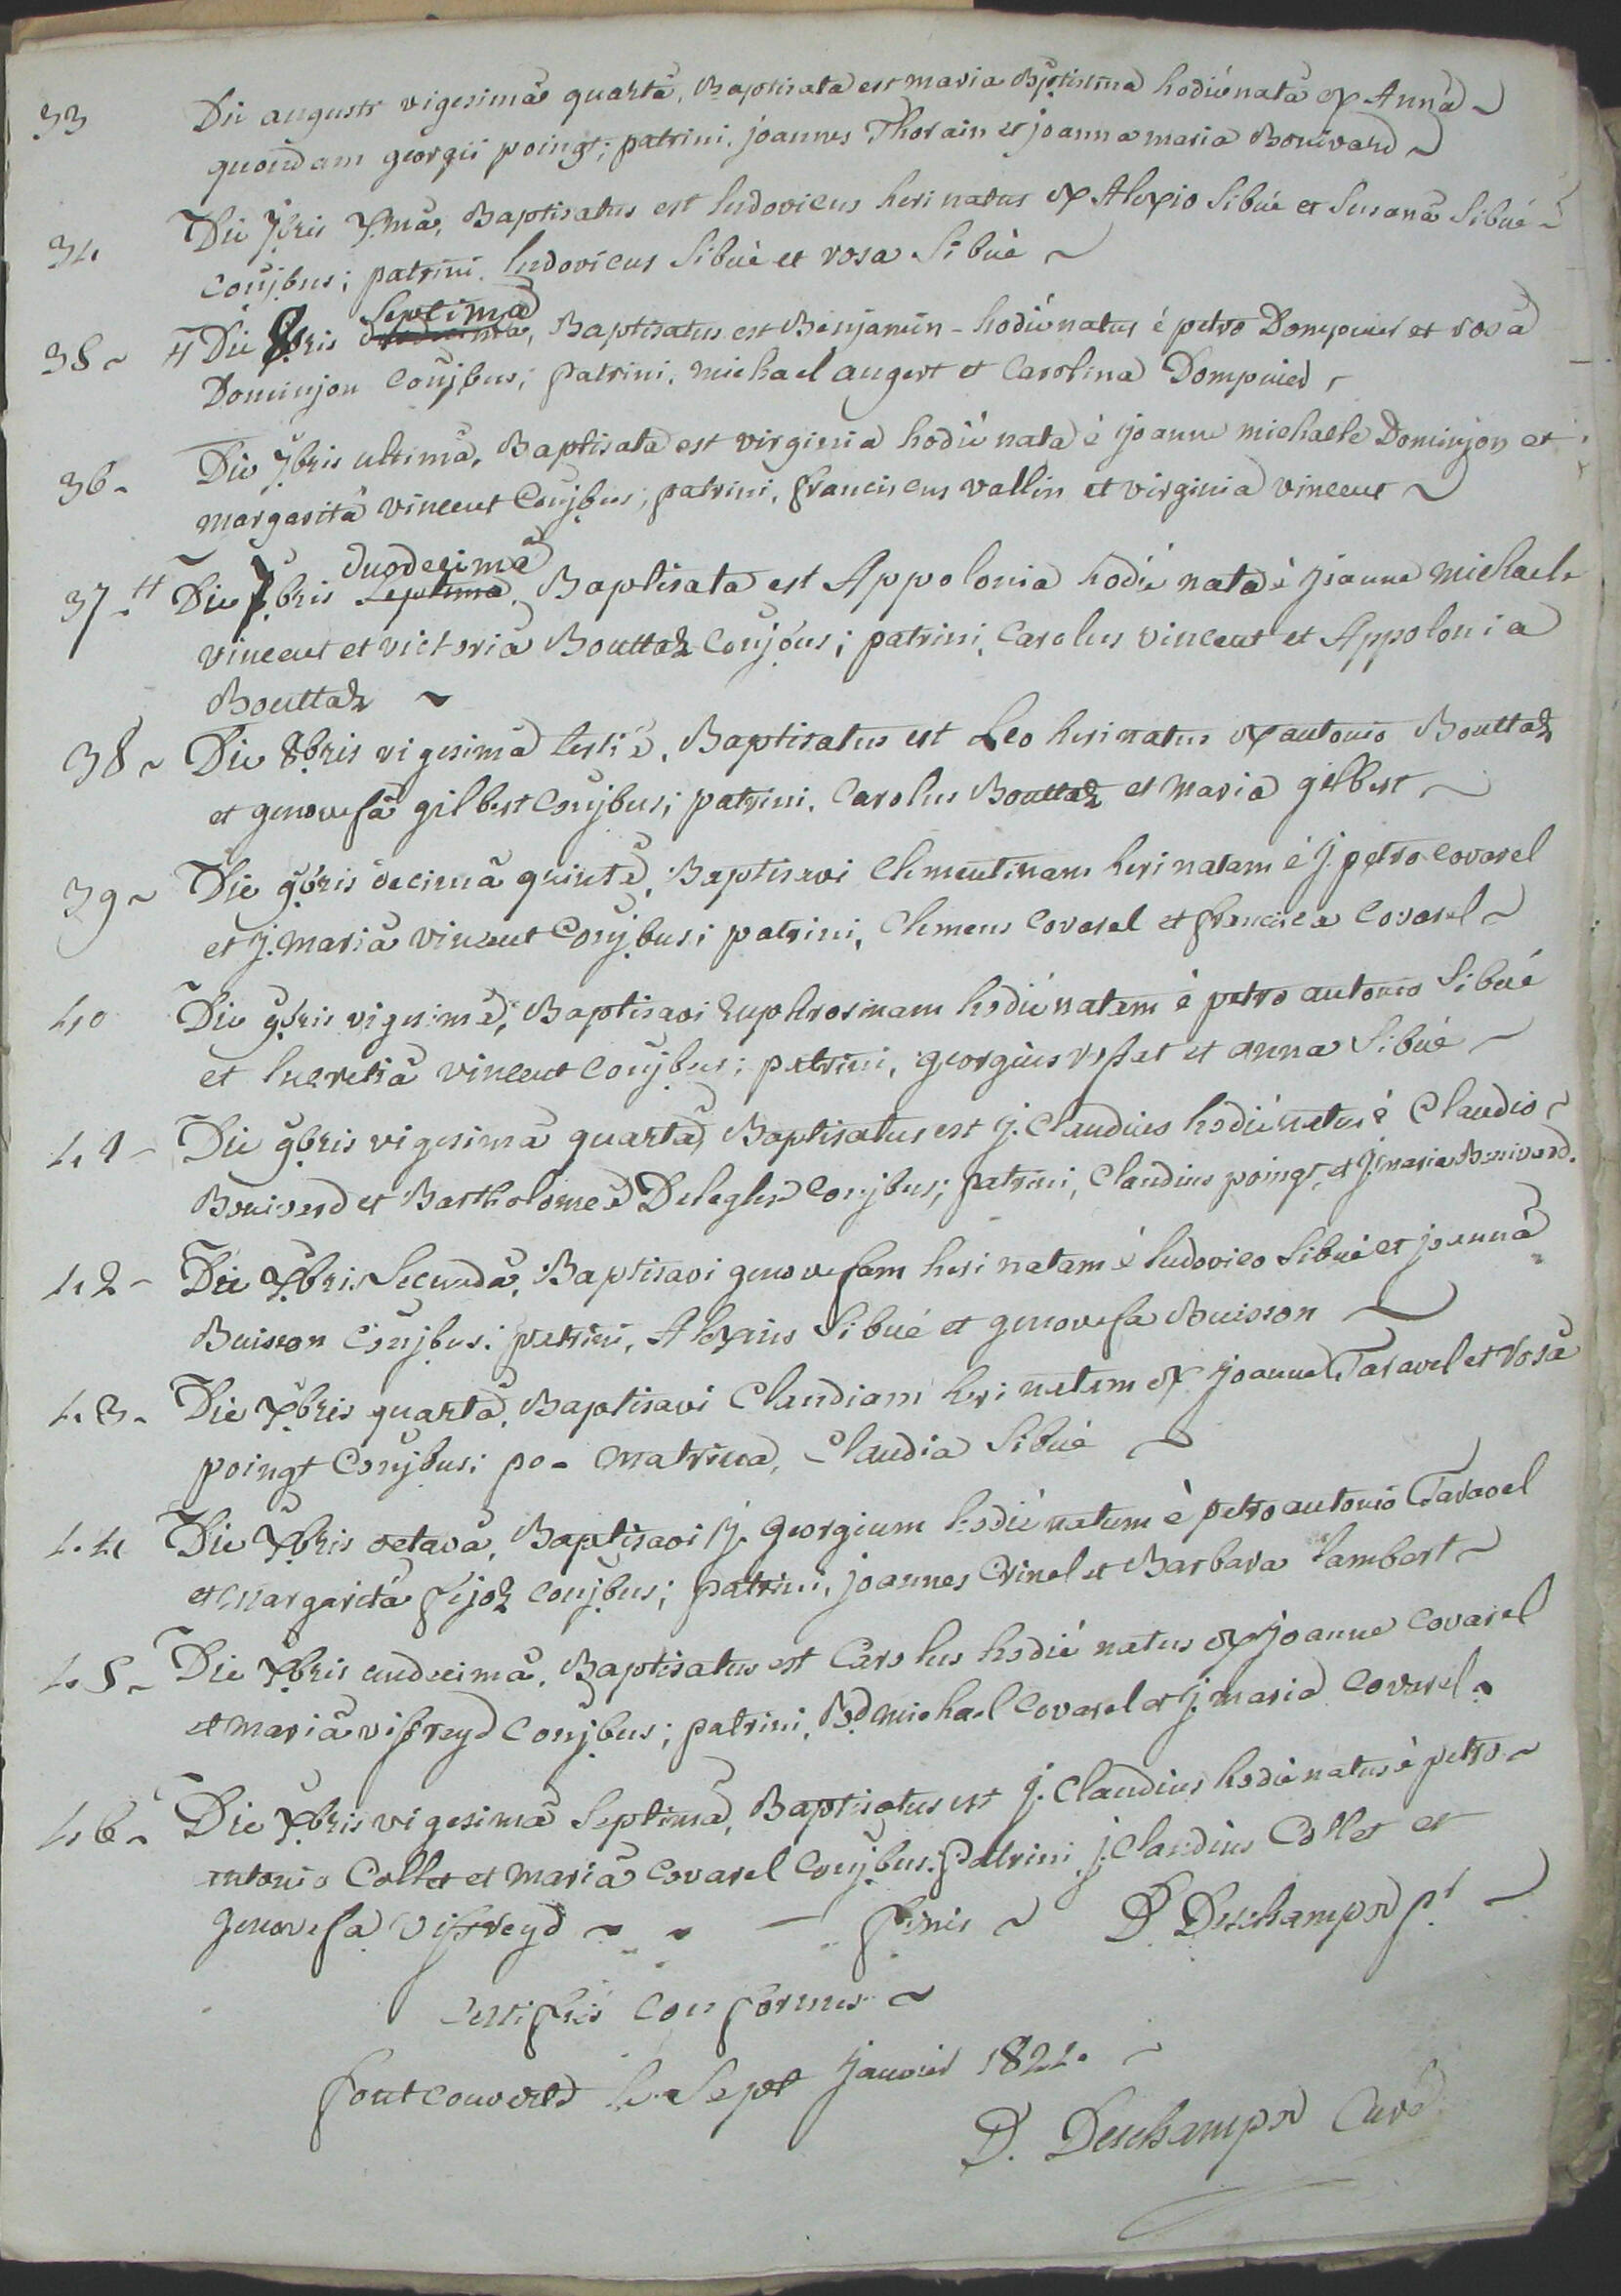 33 Die augusti vigesimâ quartâ, Baptisata est maria Baptistina hodiè nata ex Annâ ~
quondam georgii poingt; patrini, joannes Thorain et joanna maria Bonivard ~
34 Die 7bris Xmâ, Baptisatus est ludovicus heri natus ex Alexio Sibué et Susanâ Sibué ~
Conjbus; patrini, ludovicus Sibué et rosa Sibué ~
Septimâ
35 ~ # Die 8bris duodecimâ, Baptisatus est Benjamin - hodiè natus è petro Dompnier et rosâ
Dominjon Conjbus; patrini, michael augert et Carolina Dompnier ~
36 - Die 7bris ultimâ, Baptisata est virginia hodiè nata è joanne michaele Dominjon et
margaritâ vincent Conjbus; patrini, franciscus vallin et virginia vincent ~
duodecimâ
37 # Die 8bris Septimâ, Baptisata est Appolonia hodiè nata è joanne michaele
vincent et victoriâ Bouttaz Conjbus; patrini, Carolus vincent et Appolonia
Bouttaz ~
38 ~ Die 8bris vigesimâ tertiâ, Baptisatus est Leo heri natus ex antonio Bouttaz
et genovefâ gilbert Conjbus; patrini, Carolus Bouttaz et maria gilbert ~
39 ~ Die 9bris decimâ quintâ, Baptisavi Clementinam heri natam è j. petro Covarel
et j. mariâ vincent Conjbus; patrini, Clemens Covarel et francisca Covarel ~
40 Die 9bris vigesimâ, Baptisavi Euphrosinam hodiè natam è petro antonio Sibué
et lucretiâ vincent Conjbus; patrini, georgius et anna Sibué ~
41 - Die 9bris vigesimâ quartâ, Baptisatus est j. Claudius hodiè natus è Claudio ~
Bonivard et Bartholomeâ Deleglise Conjbus; patrini, Claudius poingt, et j. maria Bonivard.
42 - Die Xbris Secundâ, Baptisavi genovefam heri natam è ludovico Sibué et joannâ
Buisson Conjbus; patrini, Alexius Sibué et genovefa Buisson ~
43 - Die Xbris quartâ, Baptisavi Claudiam heri natam ex joanne Taravel et rosâ
poingt Conjbus; pa - matrina, Claudia Sibué ~
44 Die Xbris octavâ, Baptisavi j. georgium hodiè natum è petro antonio Taravel
et margaritâ fejoz Conjbus; patrini, joannes Crinel et Barbara lambert ~
45 ~ Die Xbris undecimâ, Baptisatus est Carolus hodiè natus ex joanne Covarel
et mariâ viffreyd Conjbus; patrini, Bd michael Covarel et j. maria Covarel ~
46 ~ Die Xbris vigesimâ Septimâ, Baptisatus est j. Claudius hodiè natus è petro ~
antonio Collet et mariâ Covarel Conjbus; Patrini j. Claudius Collet et
genovefa viffreyd ~ ~ — finis ~ D. Deschamps ~
Certifiés Conformes ~
fontcouverte le Sept janvier 1822. ~
D. Deschamps Curé